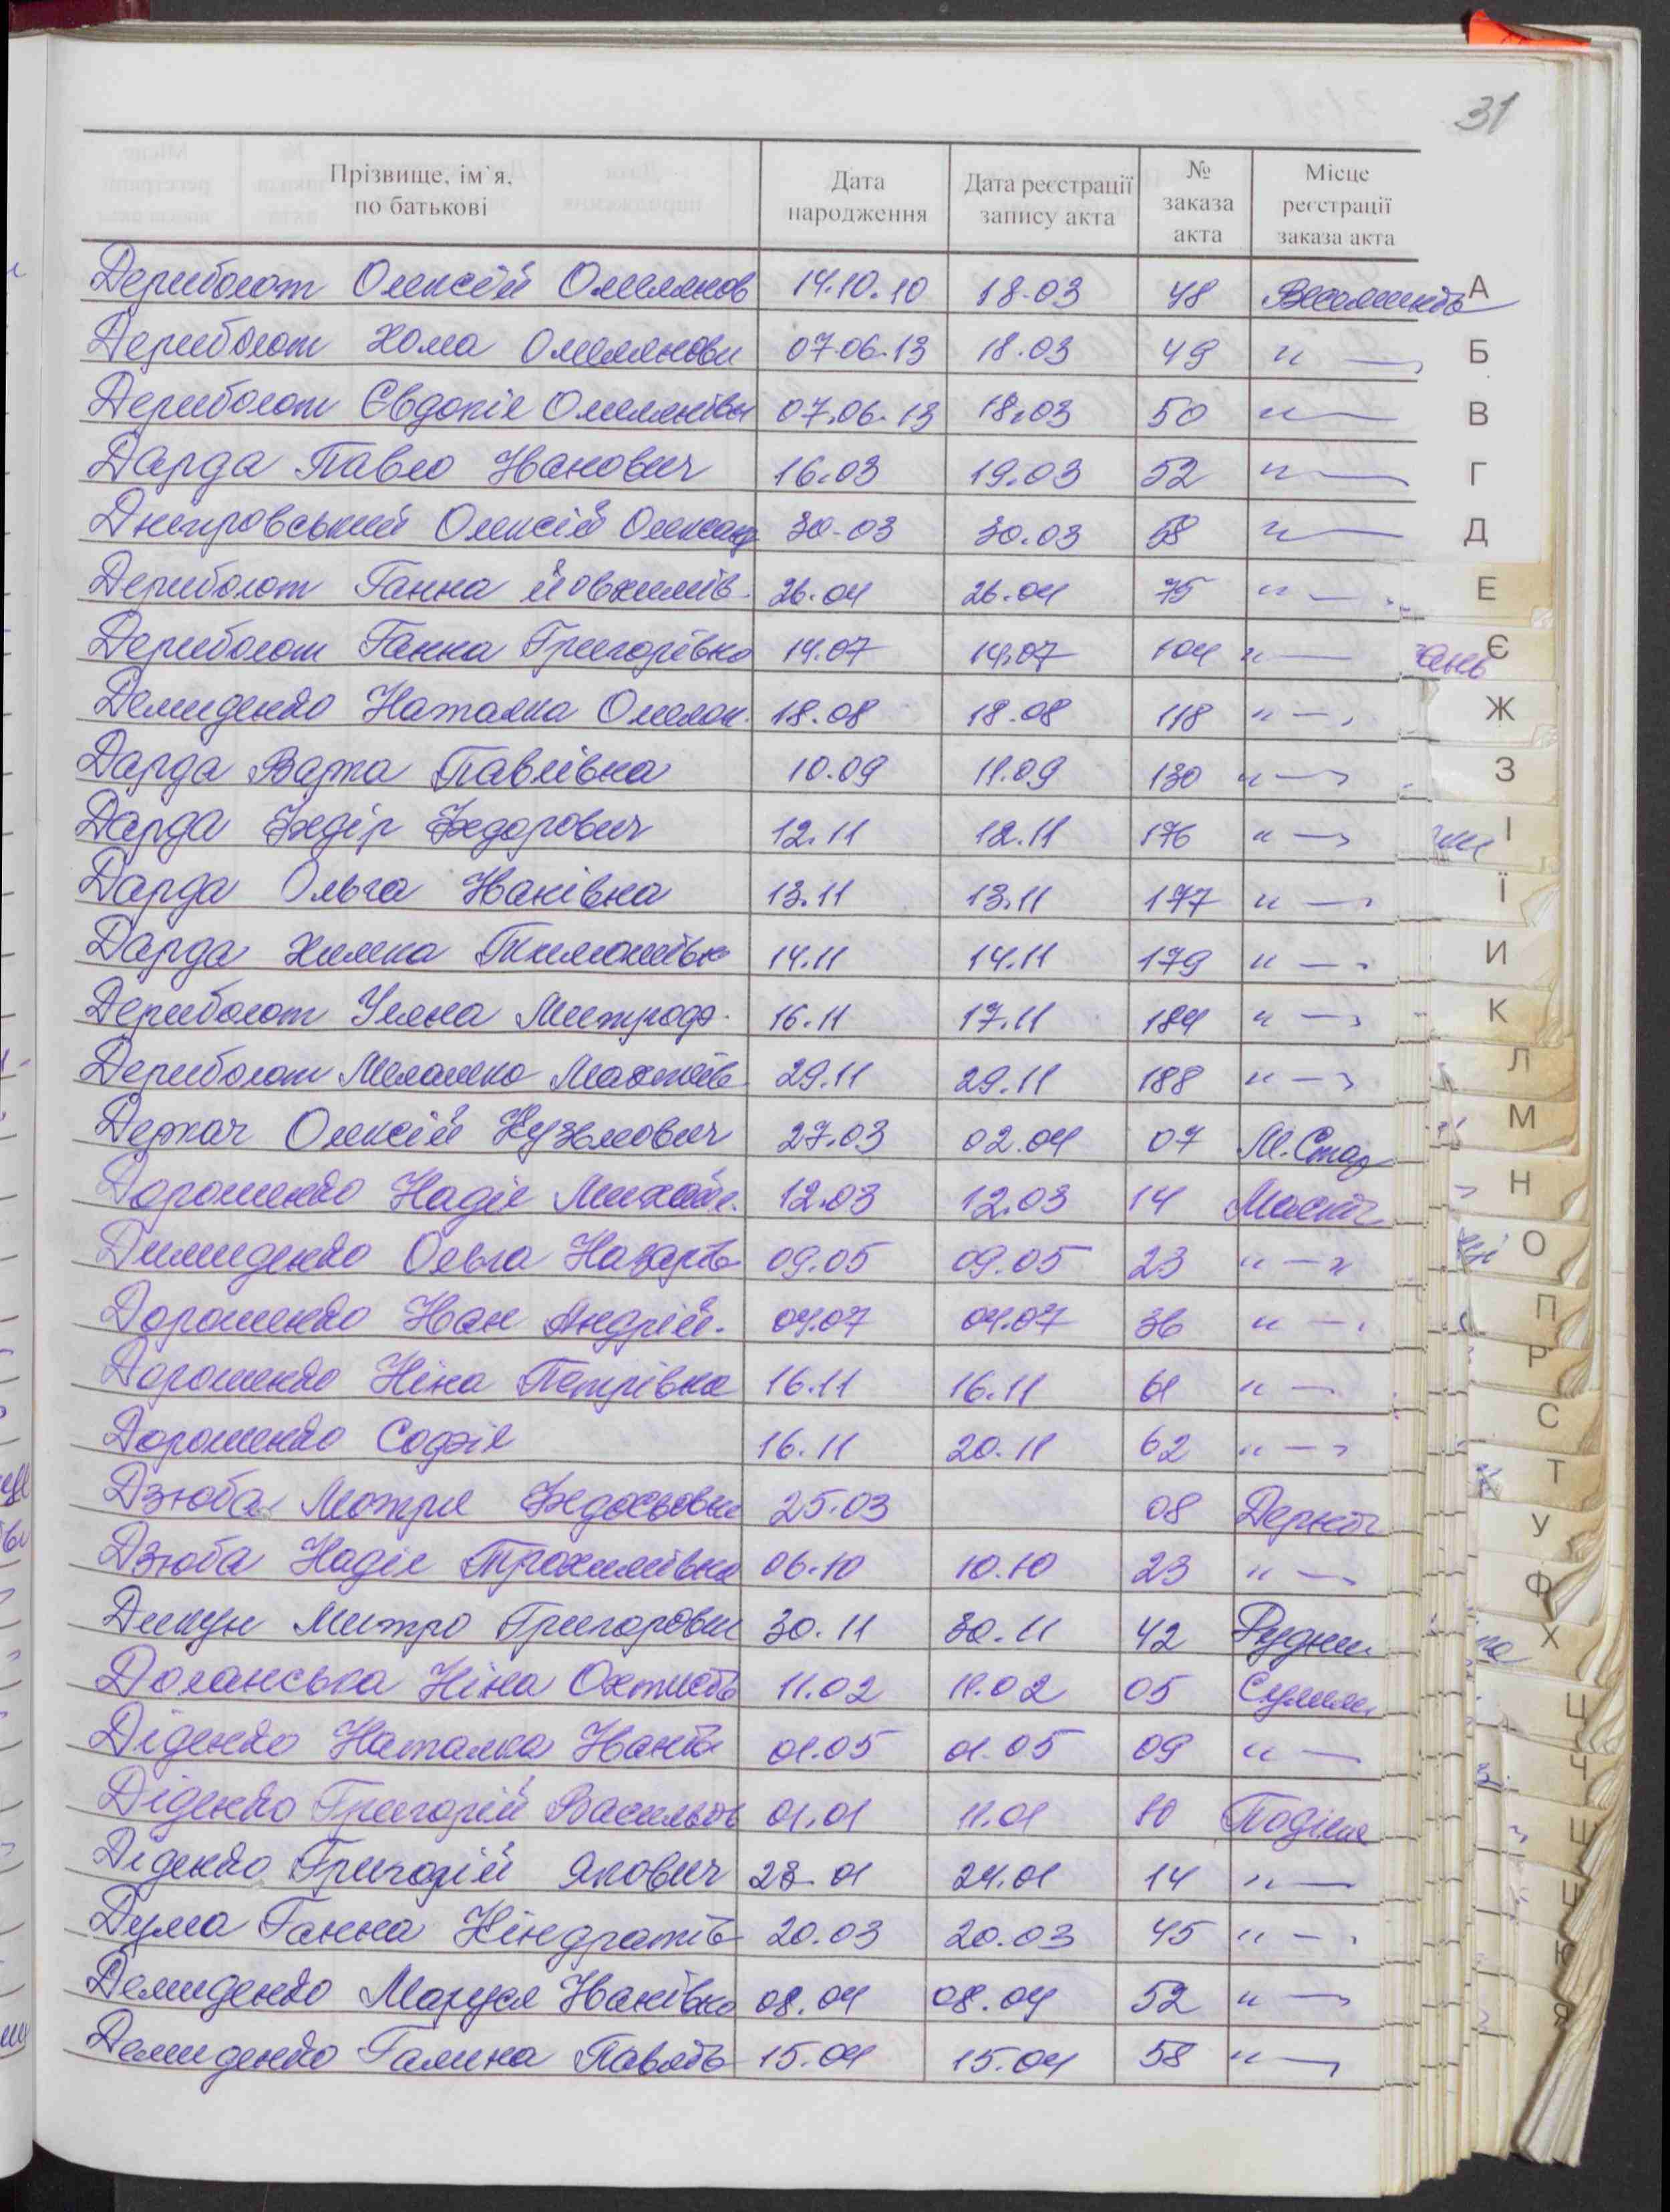 31
Прізвище, ім`я, по батькові | Дата народження | Дата реєстрації запису акта | № заказа акта | Місце реєстрації заказа акта
Дериболот Олексій Омелянов 14.10.10 18.03 48
Дериболот Хома Омелянови 07.06.13 18.03 49 " —
Дериболот Євдокія Омелянівн 07.06.13 18.03 50 " —
Дарда Павло Іванович 16.03 19.03 52 " —
Дніпровський Олексій Олександ 30.03 30.03 58 " —
Дериболот Ганна Йовхимів. 26.04 26.04 75 " —
Дериболот Ганна Григорівна 14.07 14.07 104 " —
Демиденко Наталка Омелян. 18.08 18.08 118 " —
Дарда Варка Павлівна 10.09 11.09 130 " —
Дарда Федір Федорович 12.11 12.11 176 " —
Дарда Ольга Іванівна 13.11 13.11 177 " —
Дарда Химка Тимошівн 14.11 14.11 179 " —
Дериболот Уляна Митроф. 16.11 17.11 184 " —
Дериболот Меланка 29.11 29.11 188 " —
Деркач Олексій Кузьмович 27.03 02.04 07 М.Стар
Дорошенко Надія Михайл. 12.03 12.03 14
Димиденко Ольга Назарів 09.05 09.05 23 " — "
Дорошенко Іван Андрій. 04.07 04.07 36 " —
Дорошенко Ніна Петрівна 16.11 16.11 61 " —
Дорошенко Софія 16.11 20.11 62 " —
Дзюба Мотря Федосьовна 25.03 08
Дзюба Надія Трохимівна 06.10 10.10 23 " —
Дикун Митро Григорови 30.11 30.11 42 Рудни
Доланська Ніна 11.02 11.02 05
Діденко Наталка Іванів 01.05 01.05 09 " —
Діденко Григорій Васильов 01.01 11.01 10
Діденко Григорій Якович 23.01 24.01 14 " —
Дума Ганна Кіндратів 20.03 20.03 45 " —
Демиденко Маруся Іванівна 08.04 08.04 52 " —
Демиденко Галина Павлів 15.04 15.04 58 " —
А
Б
В
Г
Д
Е
Є
Ж
З
І
Ї
И
К
Л
М
Н
О
П
Р
С
Т
У
Ф
Х
Ц
Ч
Ш
Щ
Ю
Я